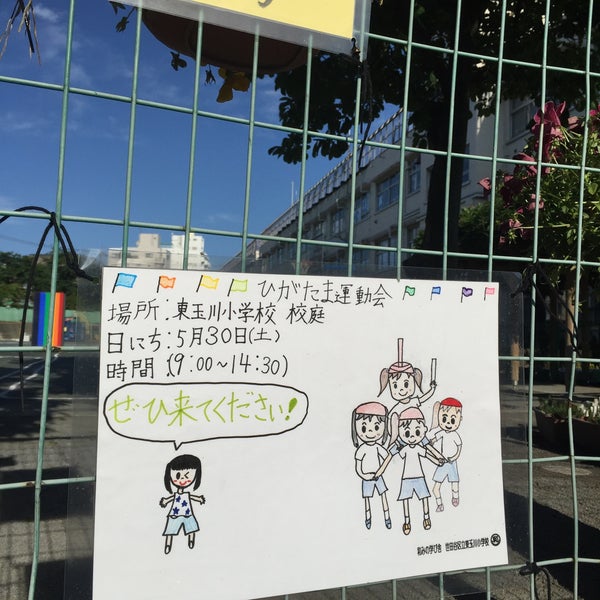 ひがたま運動会
場所:東玉川小学校 校庭
日にち:5月30日(土)
時間 (9:00~14:30)
ぜひ来てください!
世田谷区立東玉川小学校